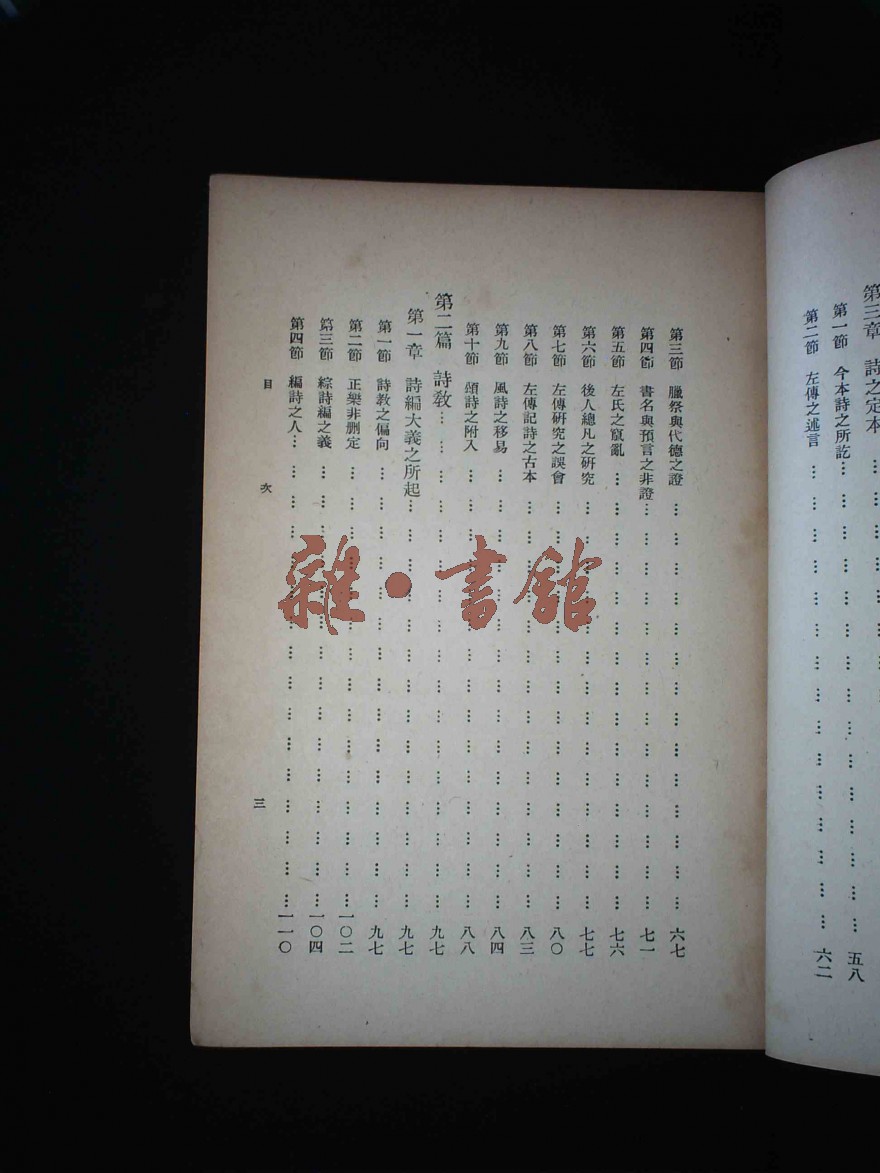 第三章 詩之定本
第一節 今本詩之所訖…………………………五八
第二節 左傳之述言…………………………六二
第三節 臘祭與代德之證…………………………六七
第四節 書名與預言之非證…………………………七一
第五節 左氏之竄亂…………………………七六
第六節 後人總凡之研究…………………………七七
第七節 左傳研究之誤會…………………………八〇
第八節 左傳記詩之古本…………………………八三
第九節 風詩之移易…………………………八四
第十節 頌詩之附入…………………………八八
第二篇 詩教…………………………九七
第一章 詩編大義之所起…………………………九七
第一節 詩教之偏向…………………………九七
第二節 正樂非刪定…………………………一〇二
第三節 綜詩編之義…………………………一〇四
第四節 編詩之人…………………………一一〇
目次 三
雜·書館